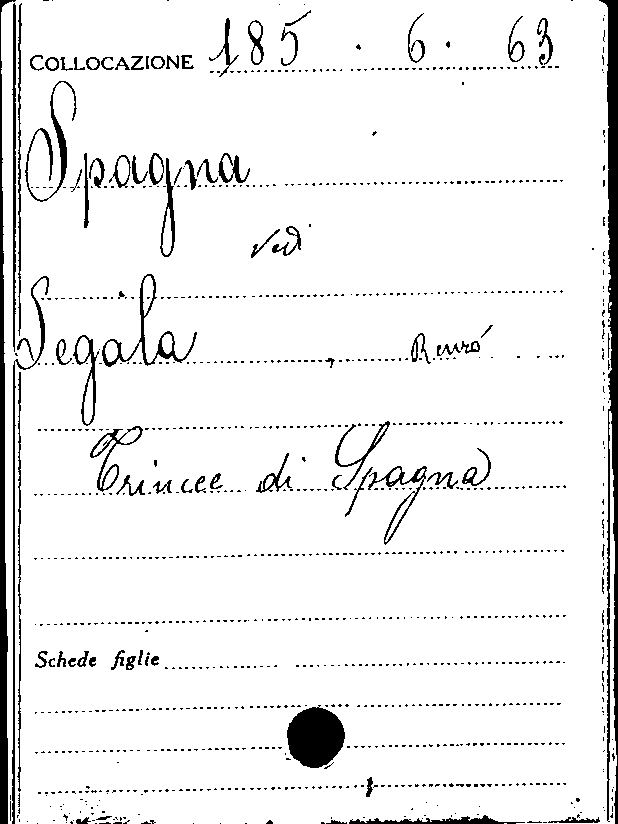 COLLOCAZIONE 185 . 6 . 63
Spagna
vedi
Segàla , Renzo
Trincee di Spagna
Schede figlie